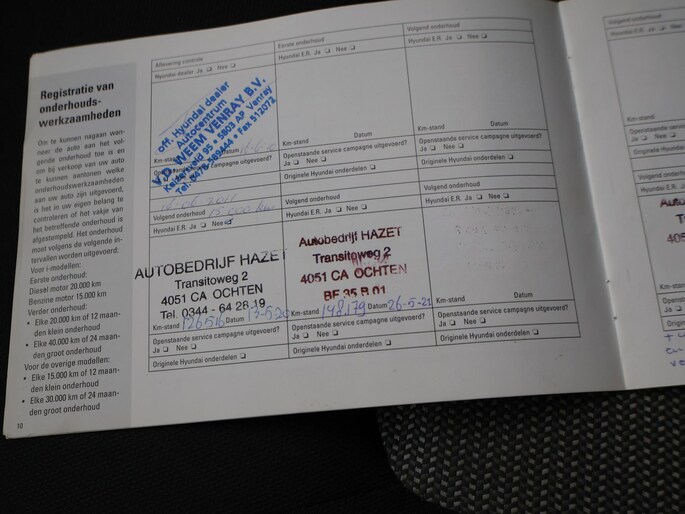 Registratie van
onderhouds-
werkzaamheden
Om te kunnen nagaan wan-
neer de auto aan het vol-
gende onderhoud toe is en
om bij verkoop van uw auto
te kunnen aantonen welke
onderhoudswerkzaamheden
aan uw auto zijn uitgevoerd,
is het in uw eigen belang te
controleren of het vakje van
het betreffende onderhoud is
afgestempeld. Het onderhoud
moet volgens de volgende in-
tervallen worden uitgevoerd:
Voor i-modellen:
Eerste onderhoud:
Diesel motor 20.000 km
Benzine motor 15.000 km
Verder onderhoud:
• Elke 20.000 km of 12 maan-
den klein onderhoud
• Elke 40.000 km of 24 maan-
den groot onderhoud
Voor de overige modellen:
• Elke 15.000 km of 12 maan-
den klein onderhoud
• Elke 30.000 km of 24 maan-
den groot onderhoud
10
Aflevering controle
Hyundai dealer Ja ❏ Nee ❏
off. Hyundai dealer
Autocentrum
V.D. WEEM VENRAY B.V.
Keizersveld 95 • 5803 AP Venray
Tel. 0478-389444 • Fax 512072
Km-stand Datum
Openstaande service campagne uitgevoerd?
Ja ❏ Nee ❏
Eerste onderhoud
Hyundai E.R. Ja ❏ Nee ❏
Km-stand Datum
Openstaande service campagne uitgevoerd?
Ja ❏ Nee ❏
Originele Hyundai onderdelen ❏
Volgend onderhoud
Hyundai E.R. Ja ❏ Nee ❏
Km-stand Datum
Openstaande service campagne uitgevoerd?
Ja ❏ Nee ❏
Originele Hyundai onderdelen ❏
16-06-2011
Volgend onderhoud 15.000 km
Hyundai E.R. Ja ❏ Nee ❏
AUTOBEDRIJF HAZET
Transitoweg 2
4051 CA OCHTEN
Tel. 0344 - 64 28 19
Km-stand 126516 Datum 13-5-20
Openstaande service campagne uitgevoerd?
Ja ❏ Nee ❏
Originele Hyundai onderdelen ❏
Volgend onderhoud
Hyundai E.R. Ja ❏ Nee ❏
Autobedrijf HAZET
Transitoweg 2
4051 CA OCHTEN
BE 35 R 01
Km-stand 148.179 Datum 26-5-21
Openstaande service campagne uitgevoerd?
Ja ❏ Nee ❏
Originele Hyundai onderdelen ❏
Volgend onderhoud
Hyundai E.R. Ja ❏ Nee ❏
Km-stand Datum
Openstaande service campagne uitgevoerd?
Ja ❏ Nee ❏
Originele Hyundai onderdelen ❏
Volgend onderhoud
Hyundai E.R. Ja ❏ Nee ❏
Km-stand
Openstaande
Ja ❏ Nee
Originele Hyundai
Volgend onderhoud
Hyundai E.R. Ja ❏
Km-stand
Openstaande
Ja ❏
Originele